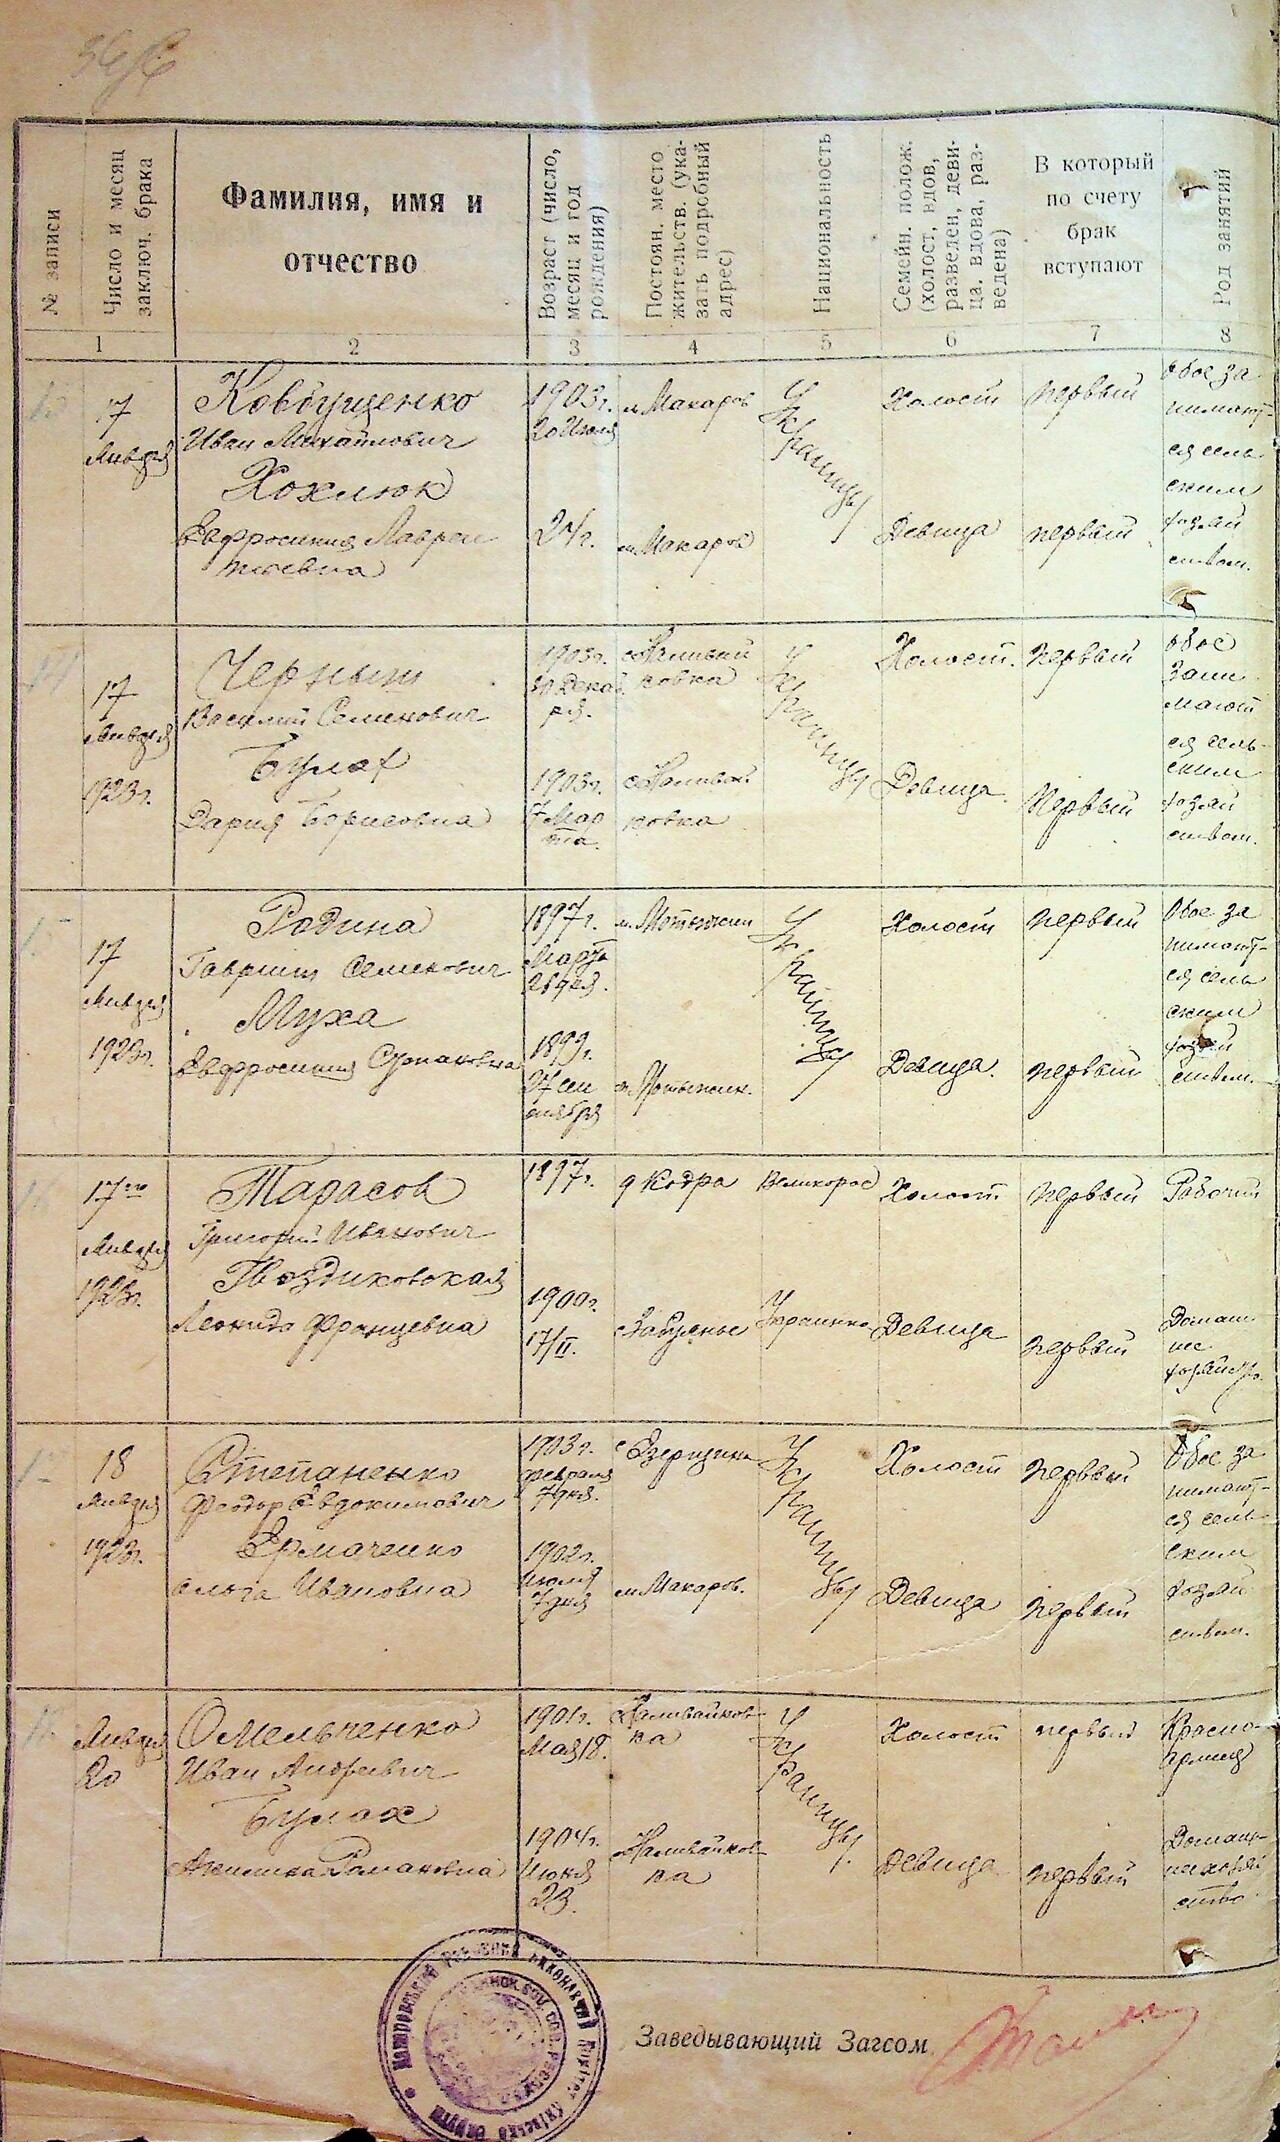 № записи
Число и месяц заключ. брака
Фамилия, имя и
отчество
Возраст (число, месяц и год рождения)
Постоян. место жительств. (ука-
зать подробный адрес)
Национальность
Семейн. полож. (холост, вдов, разведен, деви-
ца. вдова, раз-
ведена)
В который
по счету
брак
вступают
Род занятий
1
2
3
4
5
6
7
8
7
Января
Иван Михайлович
Хохлюк
Евфросиния Лаврен
тиевна
1903г.
20 Июля
24г.
м. Макаров
м. Макаров
Украинцы
Холост
Девица
первый
первый
Обое за
нимают-
ся сель
ским
хозяй
ством.
17
Января
1923г.
Черныш
Василий Семенович
Булах
Дария Борисовна
1903г.
Декаб
ря.
1903г.
7 Мар
та.
Украинцы
Холост.
Девица.
Первый
Первый
Обое
зани
мают
ся сель-
ским
хозяй
ством.
17
Января
1923г.
Родина
Гавриил Семенович
Муха
Евфросиния
1897г.
Марта
26 дня.
1899г.
м. Мотыжин
м. Мотыжин.
Украинцы
Холост
Девица.
первый
первый
Обое за
нимают-
ся сель
ским
хозяй
ством.
17го
Января
1923г.
Тарасов
Григорий Иванович
Гвоздиковская
Леонида Францевна
1897г.
1900г.
17/II.
Кодра
Забуянье
Великорос
Украинка
Холост
Девица
первый
первый
Рабочий
Домаш
нее
хозяйство.
18
Января
1923г.
Степаненко
Феодор Евдокимович
Ермаченко
Ольга Ивановна
1903г.
февраля
7 дня.
1902г.
Июля
7 дня
с Езерщина
м. Макаров.
Украинцы
Холост
Девица
первый
первый
Обое за
нимают-
ся сель-
ским
хозяй
ством.
Января
20
Омельченко
Иван
Булах
Романовна
1901г.
Мая 18.
1904г.
Июня
23.
Наливайков-
ка
Наливайков-
ка
Украинцы.
Холост
Девица
первый
первый
Красно-
армеец
Домаш-
нее хозяй
ство
Заведывающий Загсом